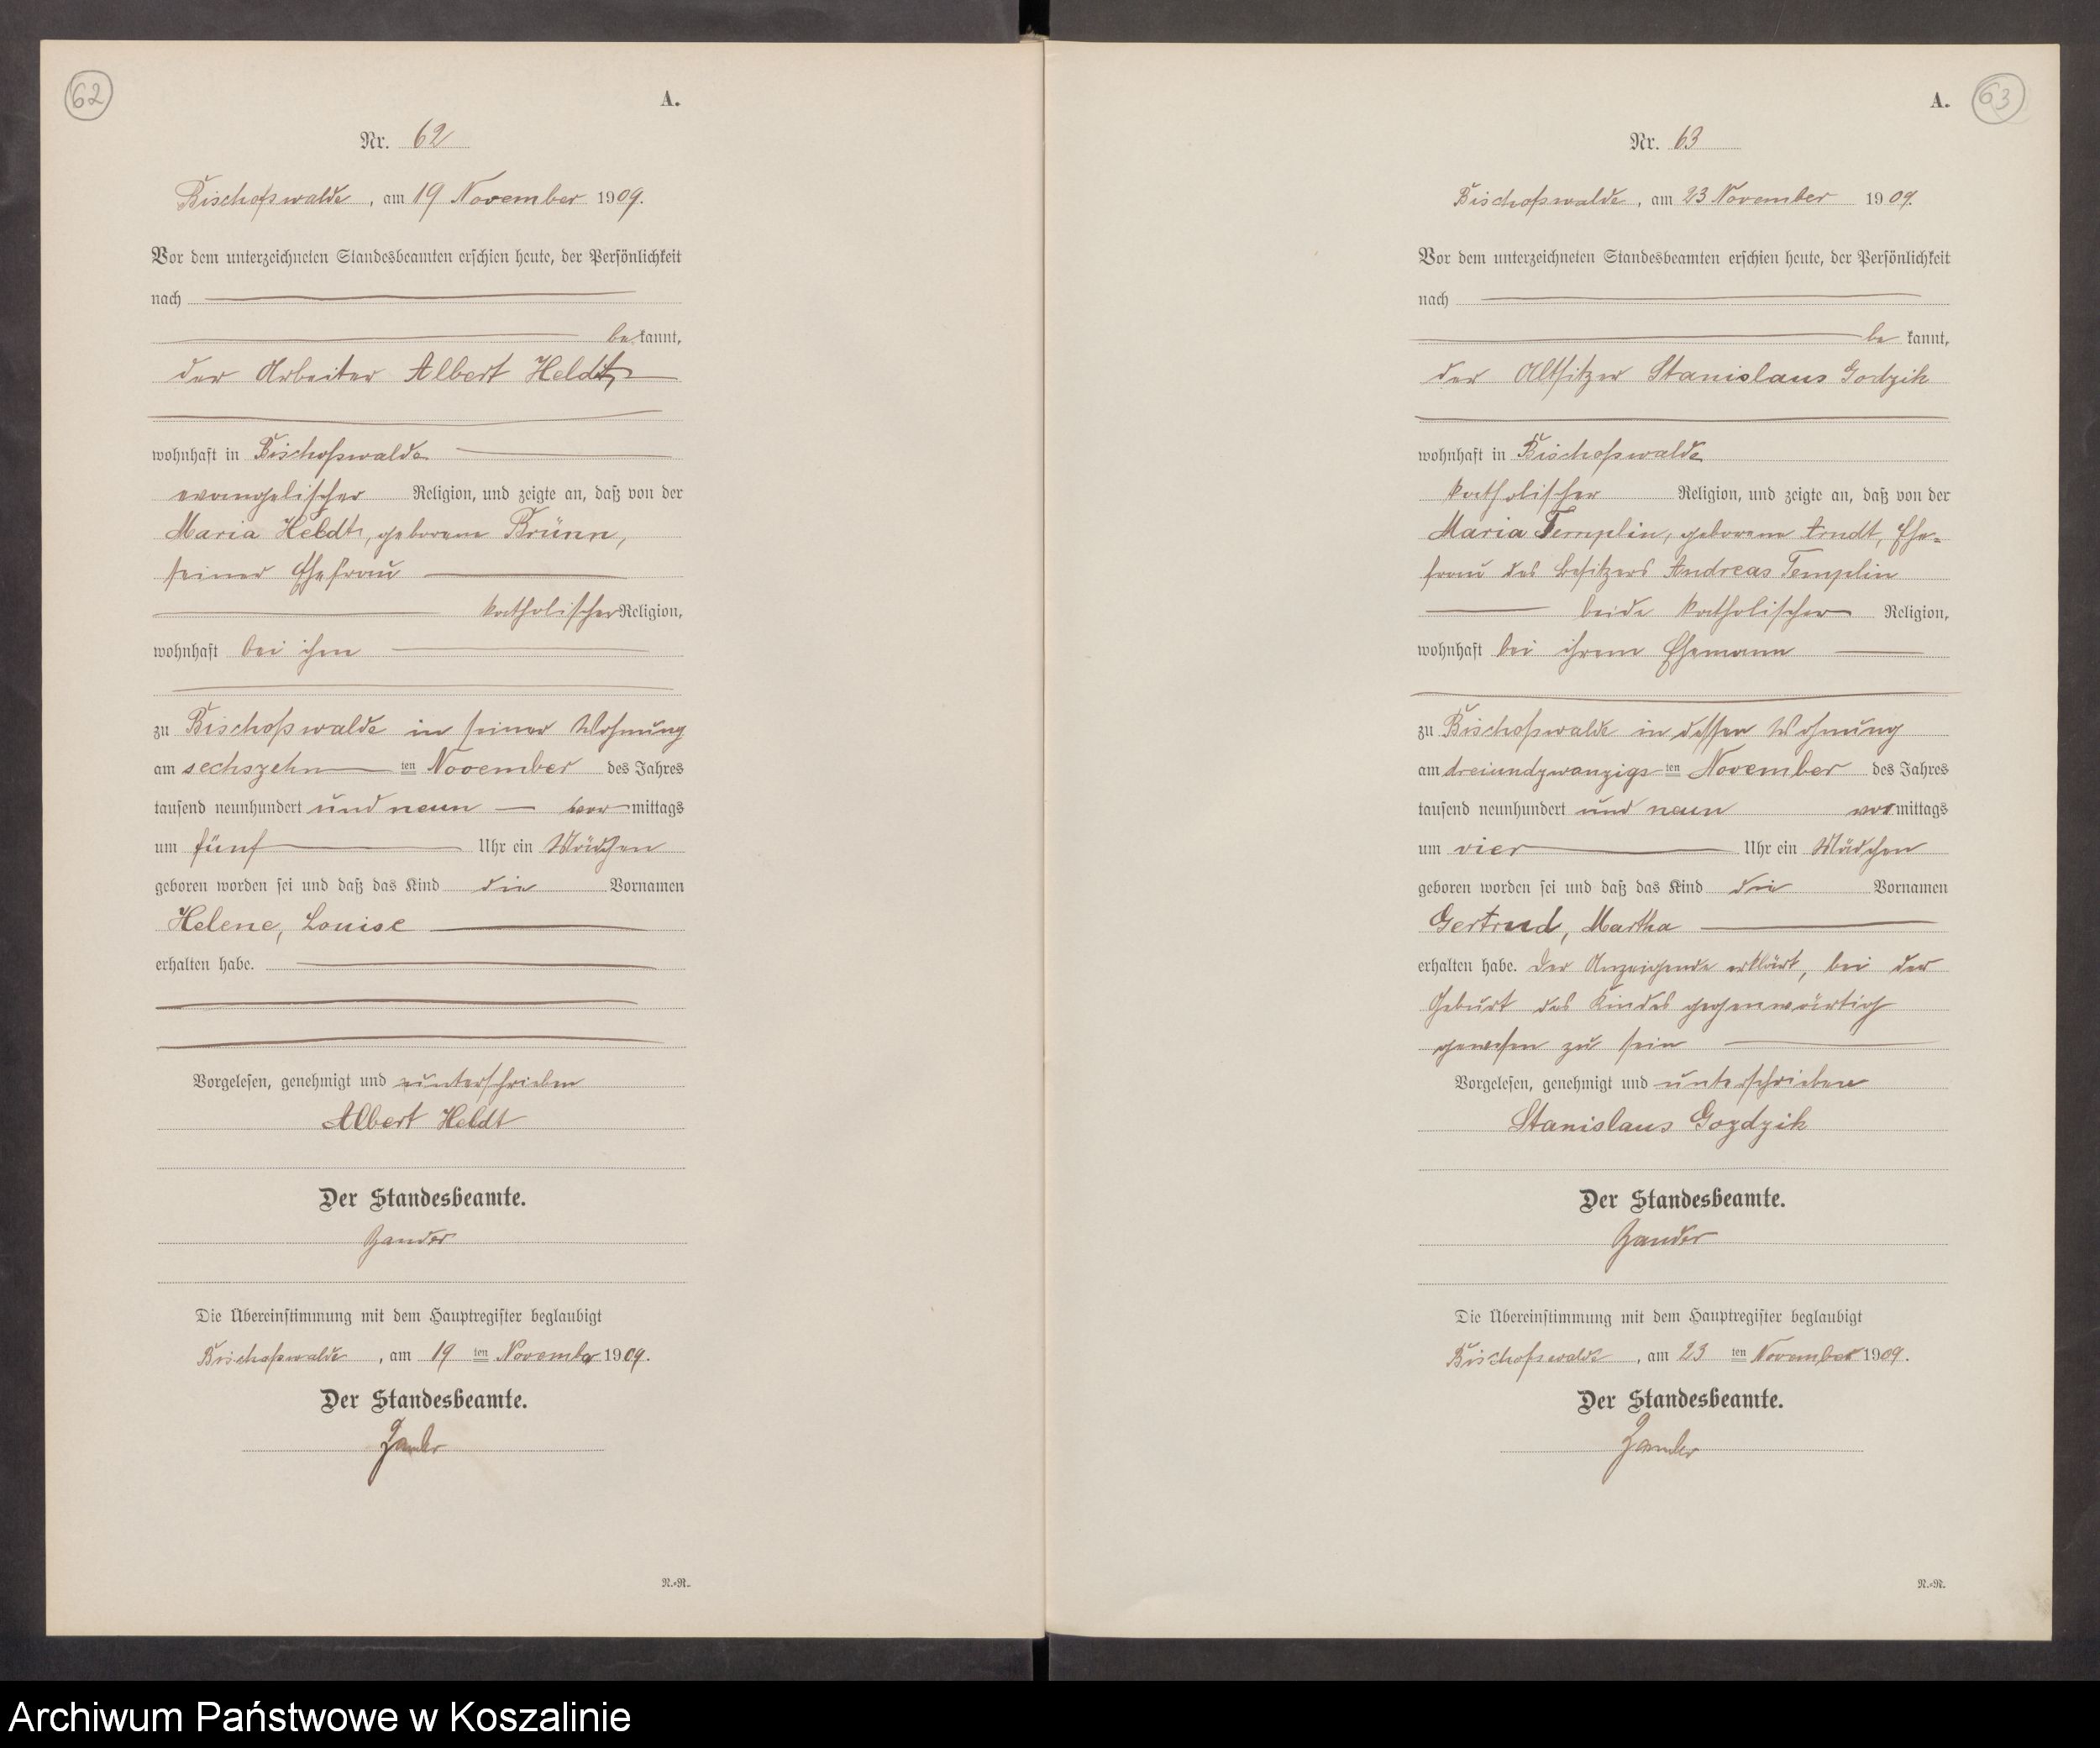 62
A.
Nr. 62
Bischofswalde, am 19 November 1909.
Vor dem unterzeichneten Standesbeamten erschien heute, der Persönlichkeit
nach
bekannt,
der Arbeiter Albert Heldt,
wohnhaft in Bischofswalde
evangelischer Religion, und zeigte an, daß von der
Maria Heldt, geborene Brünn,
seiner Ehefrau
katholischer Religion,
wohnhaft bei ihm
zu Bischofswalde in seiner Wohnung
am sechszehnten November des Jahres
tausend neunhundert und neun vormittags
um fünf Uhr ein Mädchen
geboren worden sei und daß das Kind die Vornamen
Helene, Louise
erhalten habe.
Vorgelesen, genehmigt und unterschrieben
Albert Heldt
Der Standesbeamte.
Zander
Die Übereinstimmung mit dem Hauptregister beglaubigt
Bischofswalde, am 19 ten November 1909.
Der Standesbeamte.
Zander
N.-N.
A.
63
Nr. 63
Bischofswalde, am 23 November 1909.
Vor dem unterzeichneten Standesbeamten erschien heute, der Persönlichkeit
nach
bekannt,
der Altsitzer Stanislaus Godzik
wohnhaft in Bischofswalde
katholischer Religion, und zeigte an, daß von der
Maria Templin, geborene Arndt, Ehe-
frau des Besitzers Andreas Templin
beide katholischer Religion,
wohnhaft bei ihrem Ehemann
zu Bischofswalde in dessen Wohnung
am dreiundzwanzigsten November des Jahres
tausend neunhundert und neun vormittags
um vier Uhr ein Mädchen
geboren worden sei und daß das Kind die Vornamen
Gertrud, Martha
erhalten habe. Der Anzeigende erklärt, bei der
Geburt des Kindes gegenwärtig
gewesen zu sein
Vorgelesen, genehmigt und unterschrieben
Stanislaus Gozdzik
Der Standesbeamte.
Zander
Die Übereinstimmung mit dem Hauptregister beglaubigt
Bischofswalde, am 23 ten November 1909.
Der Standesbeamte.
Zander
N.-N.
Archiwum Państwowe w Koszalinie